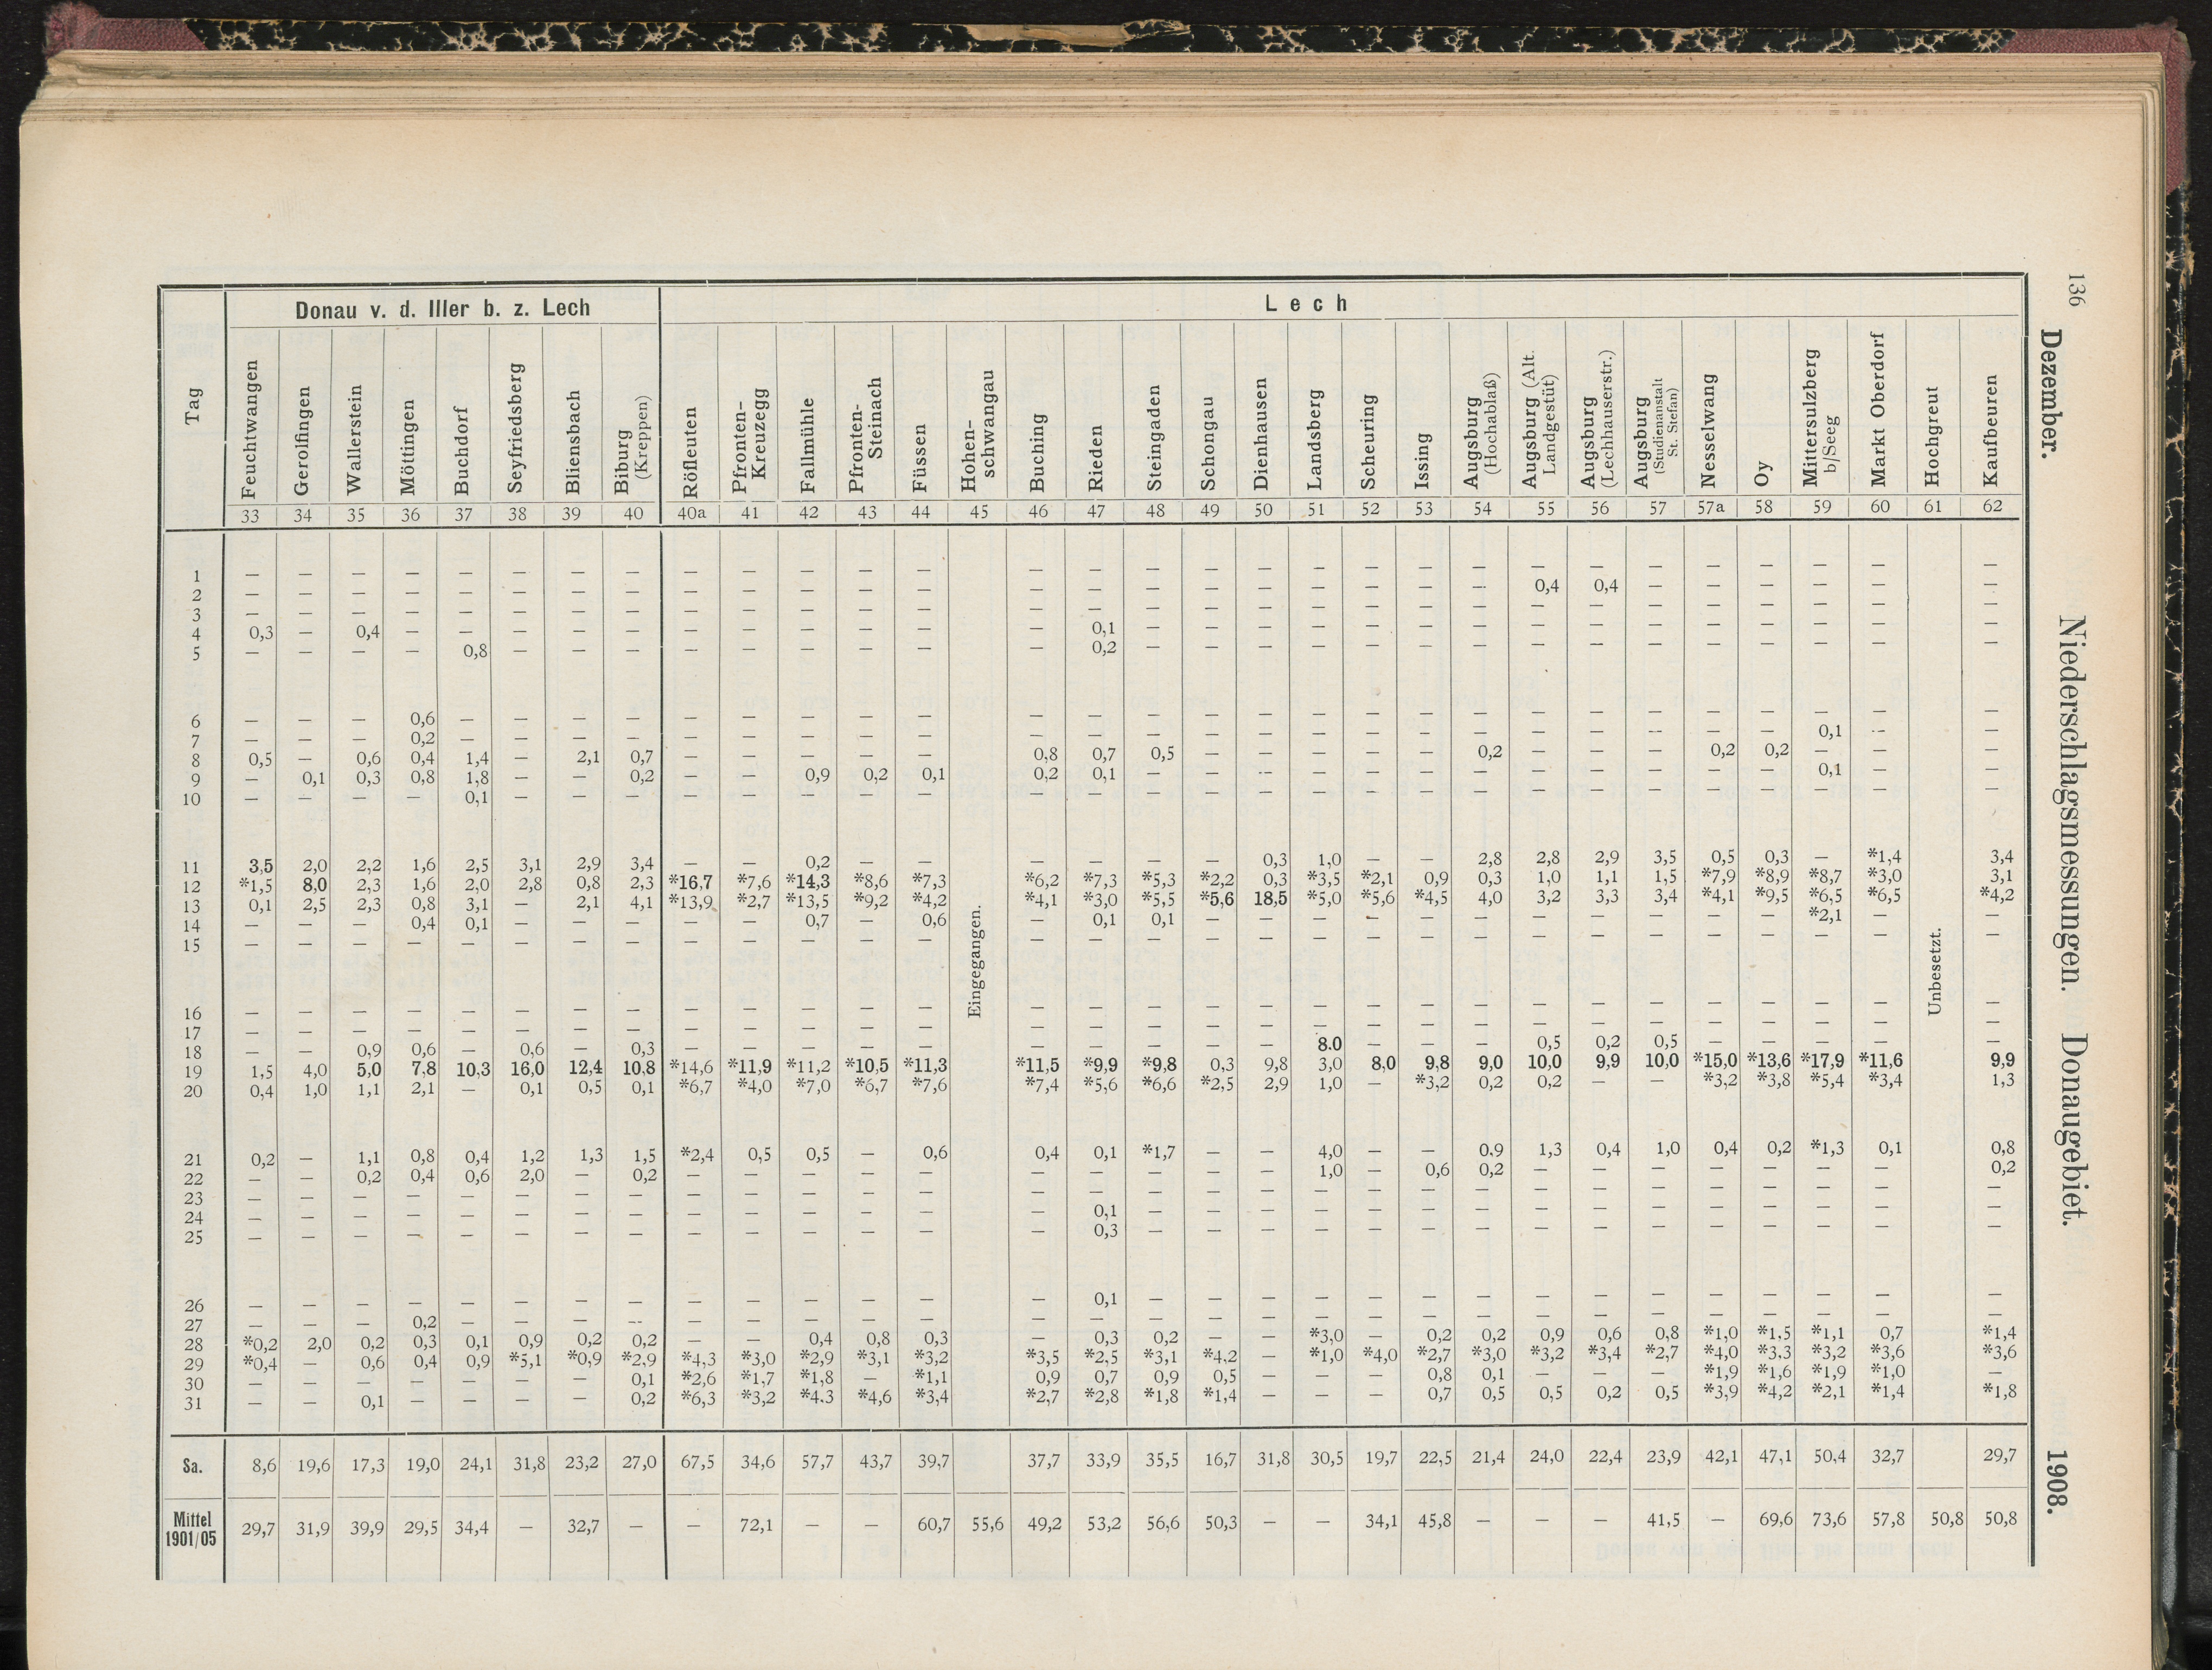 136
Dezember. Niederschlagsmessungen. Donaugebiet. 1908.
Tag | Donau v. d. Iller b. z. Lech | Lech
Feuchtwangen | Gerolfingen | Wallerstein | Möttingen | Buchdorf | Seyfriedsberg | Bliensbach | Biburg (Kreppen) | Röfleuten | Pfronten-Kreuzegg | Fallmühle | Pfronten-Steinach | Füssen | Hohen-schwangau | Buching | Rieden | Steingaden | Schongau | Dienhausen | Landsberg | Scheuring | Issing | Augsburg (Hochablaß) | Augsburg (Alt. Landgestüt) | Augsburg (Lechhauserstr.) | Augsburg (Studienanstalt St. Stefan) | Nesselwang | Oy | Mittersulzberg b/Seeg | Markt Oberdorf | Hochgreut | Kaufbeuren
33 | 34 | 35 | 36 | 37 | 38 | 39 | 40 | 40a | 41 | 42 | 43 | 44 | 45 | 46 | 47 | 48 | 49 | 50 | 51 | 52 | 53 | 54 | 55 | 56 | 57 | 57a | 58 | 59 | 60 | 61 | 62
Eingegangen.
Unbesetzt.
1 | — | — | — | — | — | — | — | — | — | — | — | — | — | | — | — | — | — | — | — | — | — | — | — | — | — | — | — | — | — | | —
2 | — | — | — | — | — | — | — | — | — | — | — | — | — | | — | — | — | — | — | — | — | — | — | 0,4 | 0,4 | — | — | — | — | — | | —
3 | — | — | — | — | — | — | — | — | — | — | — | — | — | | — | — | — | — | — | — | — | — | — | — | — | — | — | — | — | — | | —
4 | 0,3 | — | 0,4 | — | — | — | — | — | — | — | — | — | — | | — | 0,1 | — | — | — | — | — | — | — | — | — | — | — | — | — | — | | —
5 | — | — | — | — | 0,8 | — | — | — | — | — | — | — | — | | — | 0,2 | — | — | — | — | — | — | — | — | — | — | — | — | — | — | | —
6 | — | — | — | 0,6 | — | — | — | — | — | — | — | — | — | | — | — | — | — | — | — | — | — | — | — | — | — | — | — | — | — | | —
7 | — | — | — | 0,2 | — | — | — | — | — | — | — | — | — | | — | — | — | — | — | — | — | — | — | — | — | — | — | — | 0,1 | — | | —
8 | 0,5 | — | 0,6 | 0,4 | 1,4 | — | 2,1 | 0,7 | — | — | — | — | — | | 0,8 | 0,7 | 0,5 | — | — | — | — | — | 0,2 | — | — | — | 0,2 | 0,2 | — | — | | —
9 | — | 0,1 | 0,3 | 0,8 | 1,8 | — | — | 0,2 | — | — | 0,9 | 0,2 | 0,1 | | 0,2 | 0,1 | — | — | — | — | — | — | — | — | — | — | — | — | 0,1 | — | | —
10 | — | — | — | — | 0,1 | — | — | — | — | — | — | — | — | | — | — | — | — | — | — | — | — | — | — | — | — | — | — | — | — | | —
11 | 3,5 | 2,0 | 2,2 | 1,6 | 2,5 | 3,1 | 2,9 | 3,4 | — | — | 0,2 | — | — | | — | — | — | — | 0,3 | 1,0 | — | — | 2,8 | 2,8 | 2,9 | 3,5 | 0,5 | 0,3 | — | *1,4 | | 3,4
12 | *1,5 | 8,0 | 2,3 | 1,6 | 2,0 | 2,8 | 0,8 | 2,3 | *16,7 | *7,6 | *14,3 | *8,6 | *7,3 | | *6,2 | *7,3 | *5,3 | *2,2 | 0,3 | *3,5 | *2,1 | 0,9 | 0,3 | 1,0 | 1,1 | 1,5 | *7,9 | *8,9 | *8,7 | *3,0 | | 3,1
13 | 0,1 | 2,5 | 2,3 | 0,8 | 3,1 | — | 2,1 | 4,1 | *13,9 | *2,7 | *13,5 | *9,2 | *4,2 | | *4,1 | *3,0 | *5,5 | *5,6 | 18,5 | *5,0 | *5,6 | *4,5 | 4,0 | 3,2 | 3,3 | 3,4 | *4,1 | *9,5 | *6,5 | *6,5 | | *4,2
14 | — | — | — | 0,4 | 0,1 | — | — | — | — | — | 0,7 | — | 0,6 | | — | 0,1 | 0,1 | — | — | — | — | — | — | — | — | — | — | — | *2,1 | — | | —
15 | — | — | — | — | — | — | — | — | — | — | — | — | — | | — | — | — | — | — | — | — | — | — | — | — | — | — | — | — | — | | —
16 | — | — | — | — | — | — | — | — | — | — | — | — | — | | — | — | — | — | — | — | — | — | — | — | — | — | — | — | — | — | | —
17 | — | — | — | — | — | — | — | — | — | — | — | — | — | | — | — | — | — | — | — | — | — | — | — | — | — | — | — | — | — | | —
18 | — | — | 0,9 | 0,6 | — | 0,6 | — | 0,3 | — | — | — | — | — | | — | — | — | — | — | 8.0 | — | — | — | 0,5 | 0,2 | 0,5 | — | — | — | — | | —
19 | 1,5 | 4,0 | 5,0 | 7,8 | 10,3 | 16,0 | 12,4 | 10,8 | *14,6 | *11,9 | *11,2 | *10,5 | *11,3 | | *11,5 | *9,9 | *9,8 | 0,3 | 9,8 | 3,0 | 8,0 | 9,8 | 9,0 | 10,0 | 9,9 | 10,0 | *15,0 | *13,6 | *17,9 | *11,6 | | 9,9
20 | 0,4 | 1,0 | 1,1 | 2,1 | — | 0,1 | 0,5 | 0,1 | *6,7 | *4,0 | *7,0 | *6,7 | *7,6 | | *7,4 | *5,6 | *6,6 | *2,5 | 2,9 | 1,0 | — | *3,2 | 0,2 | 0,2 | — | — | *3,2 | *3,8 | *5,4 | *3,4 | | 1,3
21 | 0,2 | — | 1,1 | 0,8 | 0,4 | 1,2 | 1,3 | 1,5 | *2,4 | 0,5 | 0,5 | — | 0,6 | | 0,4 | 0,1 | *1,7 | — | — | 4,0 | — | — | 0,9 | 1,3 | 0,4 | 1,0 | 0,4 | 0,2 | *1,3 | 0,1 | | 0,8
22 | — | — | 0,2 | 0,4 | 0,6 | 2,0 | — | 0,2 | — | — | — | — | — | | — | — | — | — | — | 1,0 | — | 0,6 | 0,2 | — | — | — | — | — | — | — | | 0,2
23 | — | — | — | — | — | — | — | — | — | — | — | — | — | | — | — | — | — | — | — | — | — | — | — | — | — | — | — | — | — | | —
24 | — | — | — | — | — | — | — | — | — | — | — | — | — | | — | 0,1 | — | — | — | — | — | — | — | — | — | — | — | — | — | — | | —
25 | — | — | — | — | — | — | — | — | — | — | — | — | — | | — | 0,3 | — | — | — | — | — | — | — | — | — | — | — | — | — | — | | —
26 | — | — | — | — | — | — | — | — | — | — | — | — | — | | — | 0,1 | — | — | — | — | — | — | — | — | — | — | — | — | — | — | | —
27 | — | — | — | 0,2 | — | — | — | — | — | — | — | — | — | | — | — | — | — | — | — | — | — | — | — | — | — | — | — | — | — | | —
28 | *0,2 | 2,0 | 0,2 | 0,3 | 0,1 | 0,9 | 0,2 | 0,2 | — | — | 0,4 | 0,8 | 0,3 | | — | 0,3 | 0,2 | — | — | *3,0 | — | 0,2 | 0,2 | 0,9 | 0,6 | 0,8 | *1,0 | *1,5 | *1,1 | 0,7 | | *1,4
29 | *0,4 | — | 0,6 | 0,4 | 0,9 | *5,1 | *0,9 | *2,9 | *4,3 | *3,0 | *2,9 | *3,1 | *3,2 | | *3,5 | *2,5 | *3,1 | *4,2 | — | *1,0 | *4,0 | *2,7 | *3,0 | *3,2 | *3,4 | *2,7 | *4,0 | *3.3 | *3,2 | *3,6 | | *3,6
30 | — | — | — | — | — | — | — | 0,1 | *2,6 | *1,7 | *1,8 | — | *1,1 | | 0,9 | 0,7 | 0,9 | 0,5 | — | — | — | 0,8 | 0,1 | — | — | — | *1,9 | *1,6 | *1,9 | *1,0 | | —
31 | — | — | 0,1 | — | — | — | — | 0,2 | *6,3 | *3,2 | *4.3 | *4,6 | *3,4 | | *2,7 | *2,8 | *1,8 | *1,4 | — | — | — | 0,7 | 0,5 | 0,5 | 0,2 | 0,5 | *3,9 | *4,2 | *2,1 | *1,4 | | *1,8
Sa. | 8,6 | 19,6 | 17,3 | 19,0 | 24,1 | 31,8 | 23,2 | 27,0 | 67,5 | 34,6 | 57,7 | 43,7 | 39,7 | | 37,7 | 33,9 | 35,5 | 16,7 | 31,8 | 30,5 | 19,7 | 22,5 | 21,4 | 24,0 | 22,4 | 23,9 | 42,1 | 47,1 | 50,4 | 32,7 | | 29,7
Mittel 1901/05 | 29,7 | 31,9 | 39,9 | 29,5 | 34,4 | — | 32,7 | — | — | 72,1 | — | — | 60,7 | 55,6 | 49,2 | 53,2 | 56,6 | 50,3 | — | — | 34,1 | 45,8 | — | — | — | 41,5 | — | 69,6 | 73,6 | 57,8 | 50,8 | 50,8